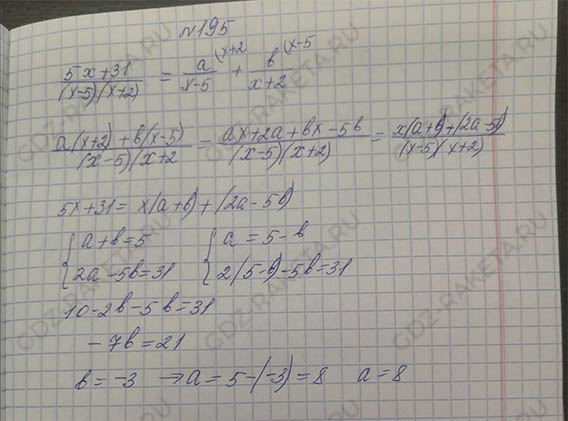 №195
(5x+31)/((x-5)(x+2)) = a/(x-5) (x+2 + b/(x+2) (x-5
(a(x+2)+b(x-5))/((x-5)(x+2) = (ax+2a+bx-5b)/((x-5)(x+2)) = (x(a+b)+(2a-5b))/((x-5)(x+2))
5x+31=x(a+b)+(2a-5b)
{a+b=5 {a=5-b
{2a-5b=31 {2(5-b)-5b=31
10-2b-5b=31
-7b=21
b=-3 → a=5-(-3)=8 a=8
GDZ-RAKETA.RU